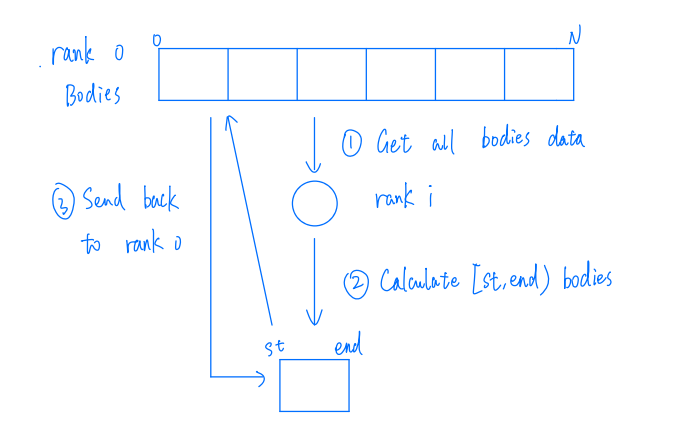 0 N
rank 0
Bodies
① Get all bodies data
rank i
③ Send back
to rank 0
② Calculate [st,end) bodies
st end